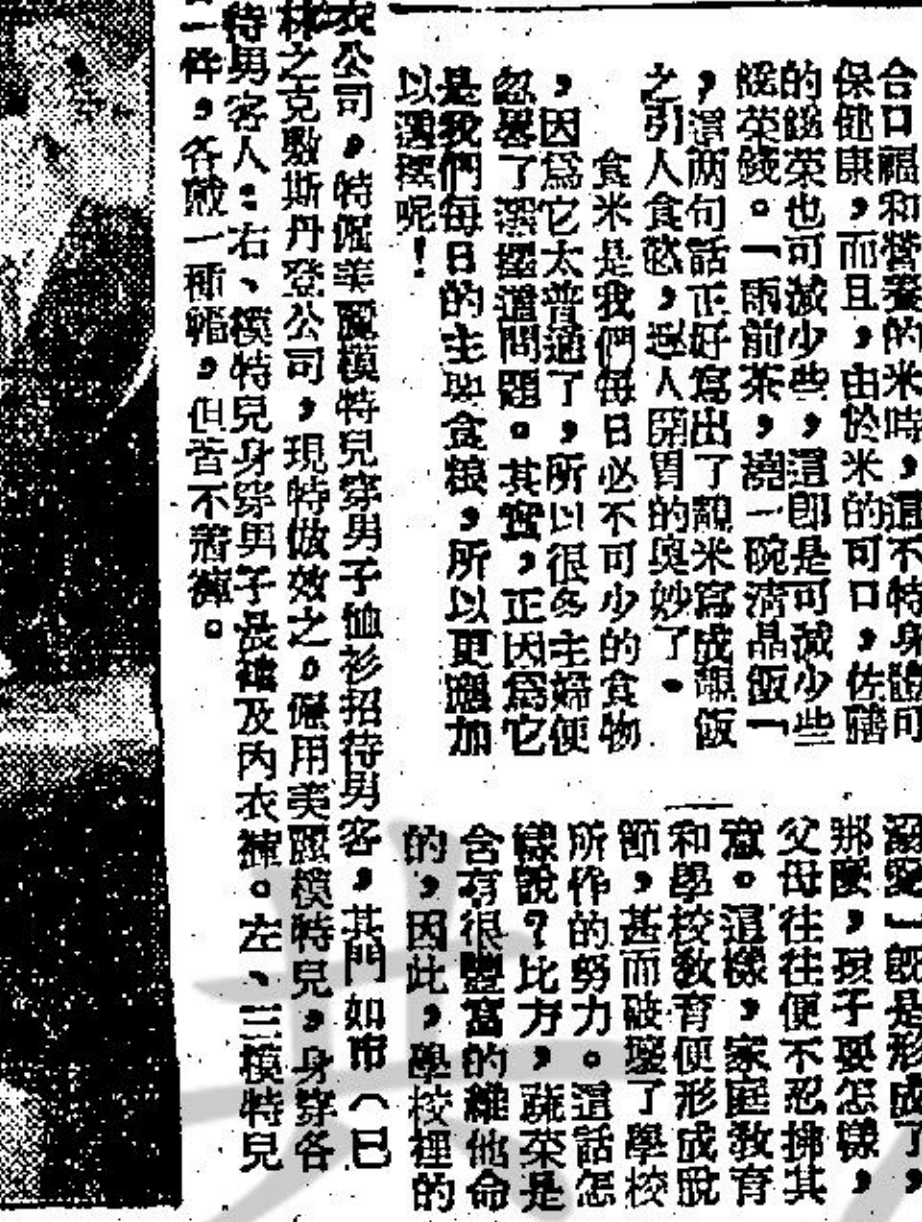 合口福和營養的米時，這不特身體可
保健康，而且，由於米的可口，佐膳
的餸菜也可減少些，這即是可減少些
餸菜錢。「雨前茶，澆一碗清晶飯「
，這两句話正好寫出了靚米寫成靚飯
之引人食慾，惹人開胃的奧妙了。
食米是我們每日必不可少的食物
，因爲它太普通了，所以很多主婦便
忽畧了選擇這問題。其實，正因爲它
是我們每日的主要食粮，所以更應加
以選擇呢！
溺愛」既是形成了，
那麽，孩子要怎樣，
父母往往便不忍拂其
意。這樣，家庭教育
和學校教育便形成脫
節，甚而破壞了學校
所作的努力。這話怎
樣說？比方，蔬菜是
含有很豐富的維他命
的，因此，學校裡的
衣公司，特僱美麗模特兒穿男子恤衫招待男客，其門如市（已
林之克敷斯丹登公司，現特倣效之。僱用美麗模特兒，身穿各
待男客人：右、模特兒身穿男子長褲及內衣褲。左、三模特兒
一件，各戴一種帽，但皆不著褲。